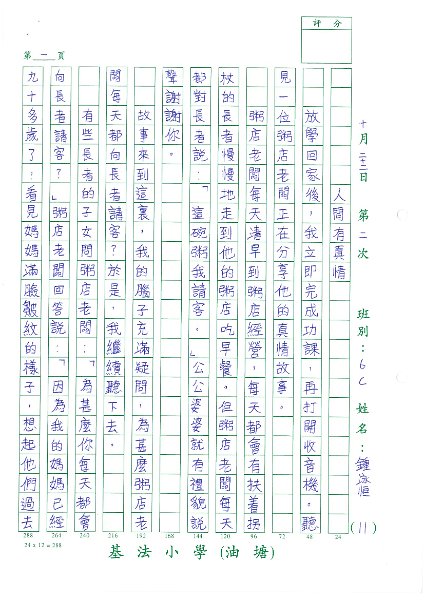 評分
第一頁
十月二十三日 第二次 班別：6C 姓名：鍾 恒(11)
人間有真情
放學回家後，我立即完成功課，再打開收音機。聽
見一位粥店老闆正在分享他的真情故事。
粥店老闆每天清早到粥店經營，每天都會有扶着拐
杖的長者慢慢地走到他的粥店吃早餐。但粥店老闆每天
都對長者說：「這碗粥我請客。」公公婆婆就有禮貌說
聲謝謝你。
故事來到這裏，我的腦子充滿疑問，為甚麼粥店老
闆每天都向長者請客？於是，我繼續聽下去。
有些長者的子女問粥店老闆：「為甚麼你每天都會
向長者請客？」粥店老闆回答說：「因為我的媽媽已經
九十多歲了，看見媽媽滿臉皺紋的樣子，想起他們過去
24
48
72
96
120
144
168
192
216
240
264
288
24 x 12 = 288
基法小學(油塘)